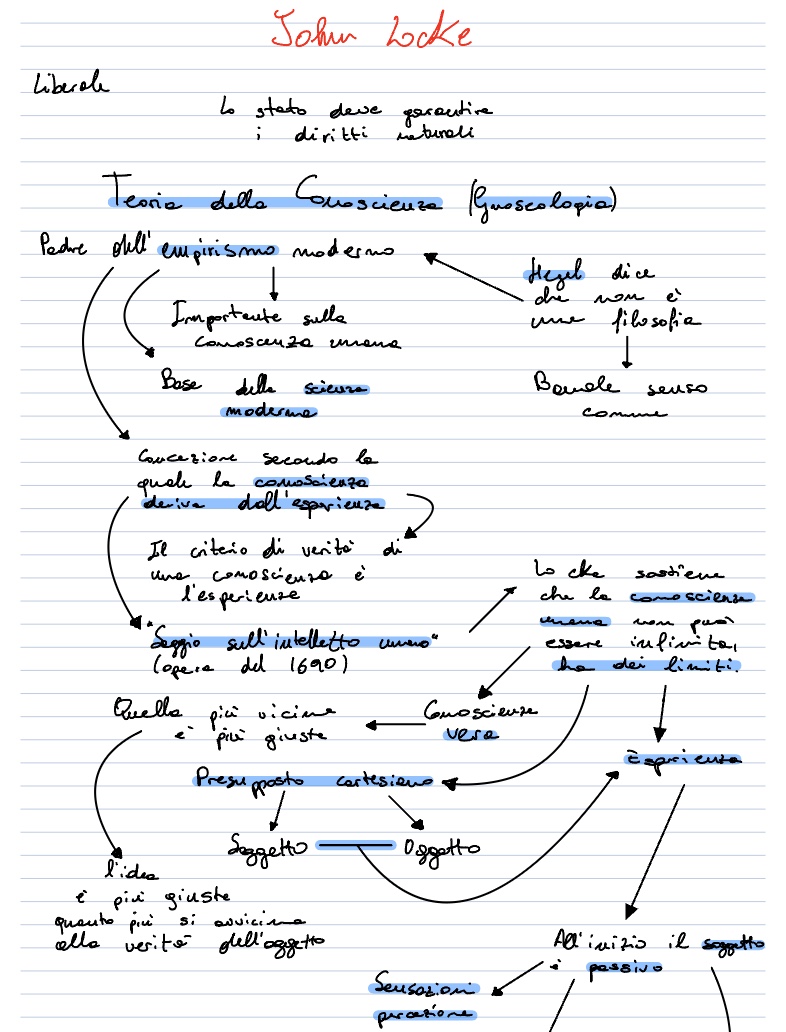 John Locke
Liberale
Lo stato deve garantire
i diritti naturali
Teoria della Conoscienza (Gnoseologia)
Padre dell'empirismo moderno
Hegel dice
che non è
una filosofia
Importante sulla
conoscenza umana
Base della scienza
moderna
Banale senso
comune
Concezione secondo la
quale la conoscienza
deriva dall'esperienza
Il criterio di verità di
una conoscienza è
l'esperienza
Locke sostiene
che la conoscienza
umana non può
essere infinita,
ha dei limiti.
"Saggio sull'intelletto umano"
(opera del 1690)
Quella più vicina
è più giusta
Conoscienza
vera
Esperienza
Presupposto cartesiano
Soggetto
Oggetto
l'idea
è più giusta
quanto più si avvicina
alla verità dell'oggetto
All'inizio il soggetto
è passivo
Sensazioni
percezione